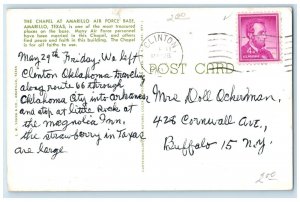 THE CHAPEL AT AMARILLO AIR FORCE BASE,
AMARILLO, TEXAS, is one of the most treasured
places on the base. Many Air Force personnel
have been married in the Chapel, and others
find peace and faith in this building. The Chapel
is for all faiths to use.
2.00
CLINTON
POST CARD
May 29th Friday. We left
Clinton Oklahoma traveling
along route 66 through
Oklahoma City into Arkansas
and stop at Little Rock at
the Magnolia Inn.
the strawberry in Texas
are large.
Mrs Doll Ockerman,
428 Cornwall Ave.,
Buffalo 15 N.Y.
2.00